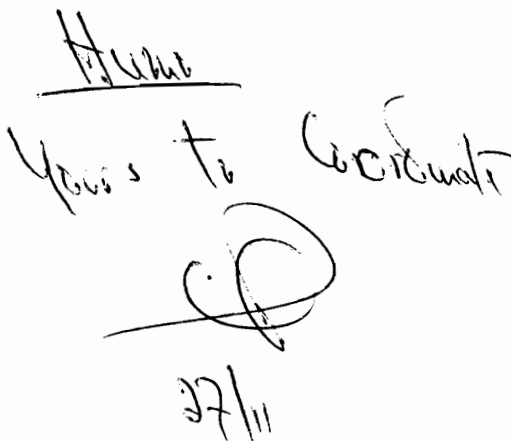 Yours to Coordinate
27/11